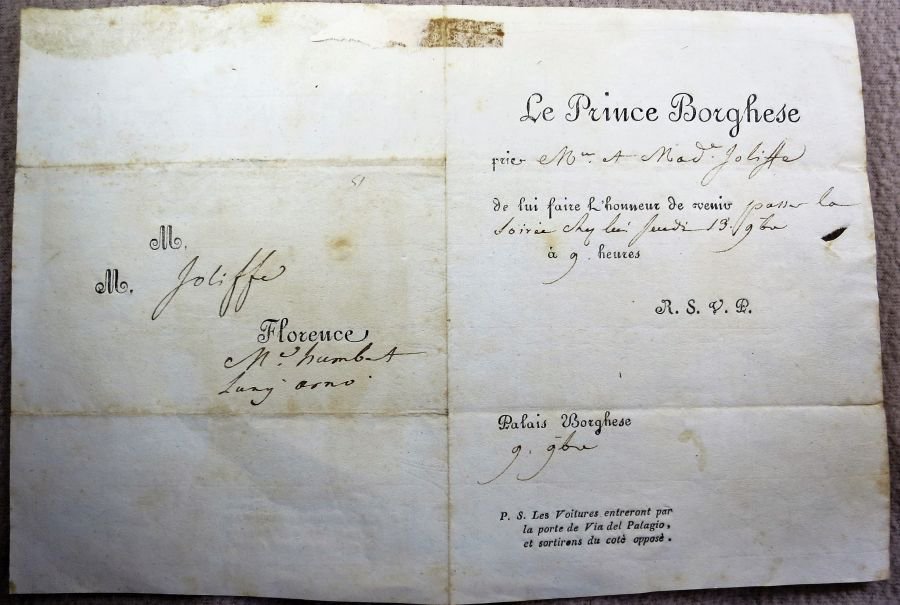 M.
M. Joliffe
Florence
Mad. humbert
Lung. arno.
Le Prince Borghese
prie Mr. et Made. Joliffe
de lui faire l'honneur de venir passer la
soirée chez lui Jeudi 13. 9bre
à 9. heures
R. S. V. P.
Palais Borghese
9. 9bre
P. S. Les Voitures entreront par
la porte de Via del Palagio,
et sortirons du coté opposè.